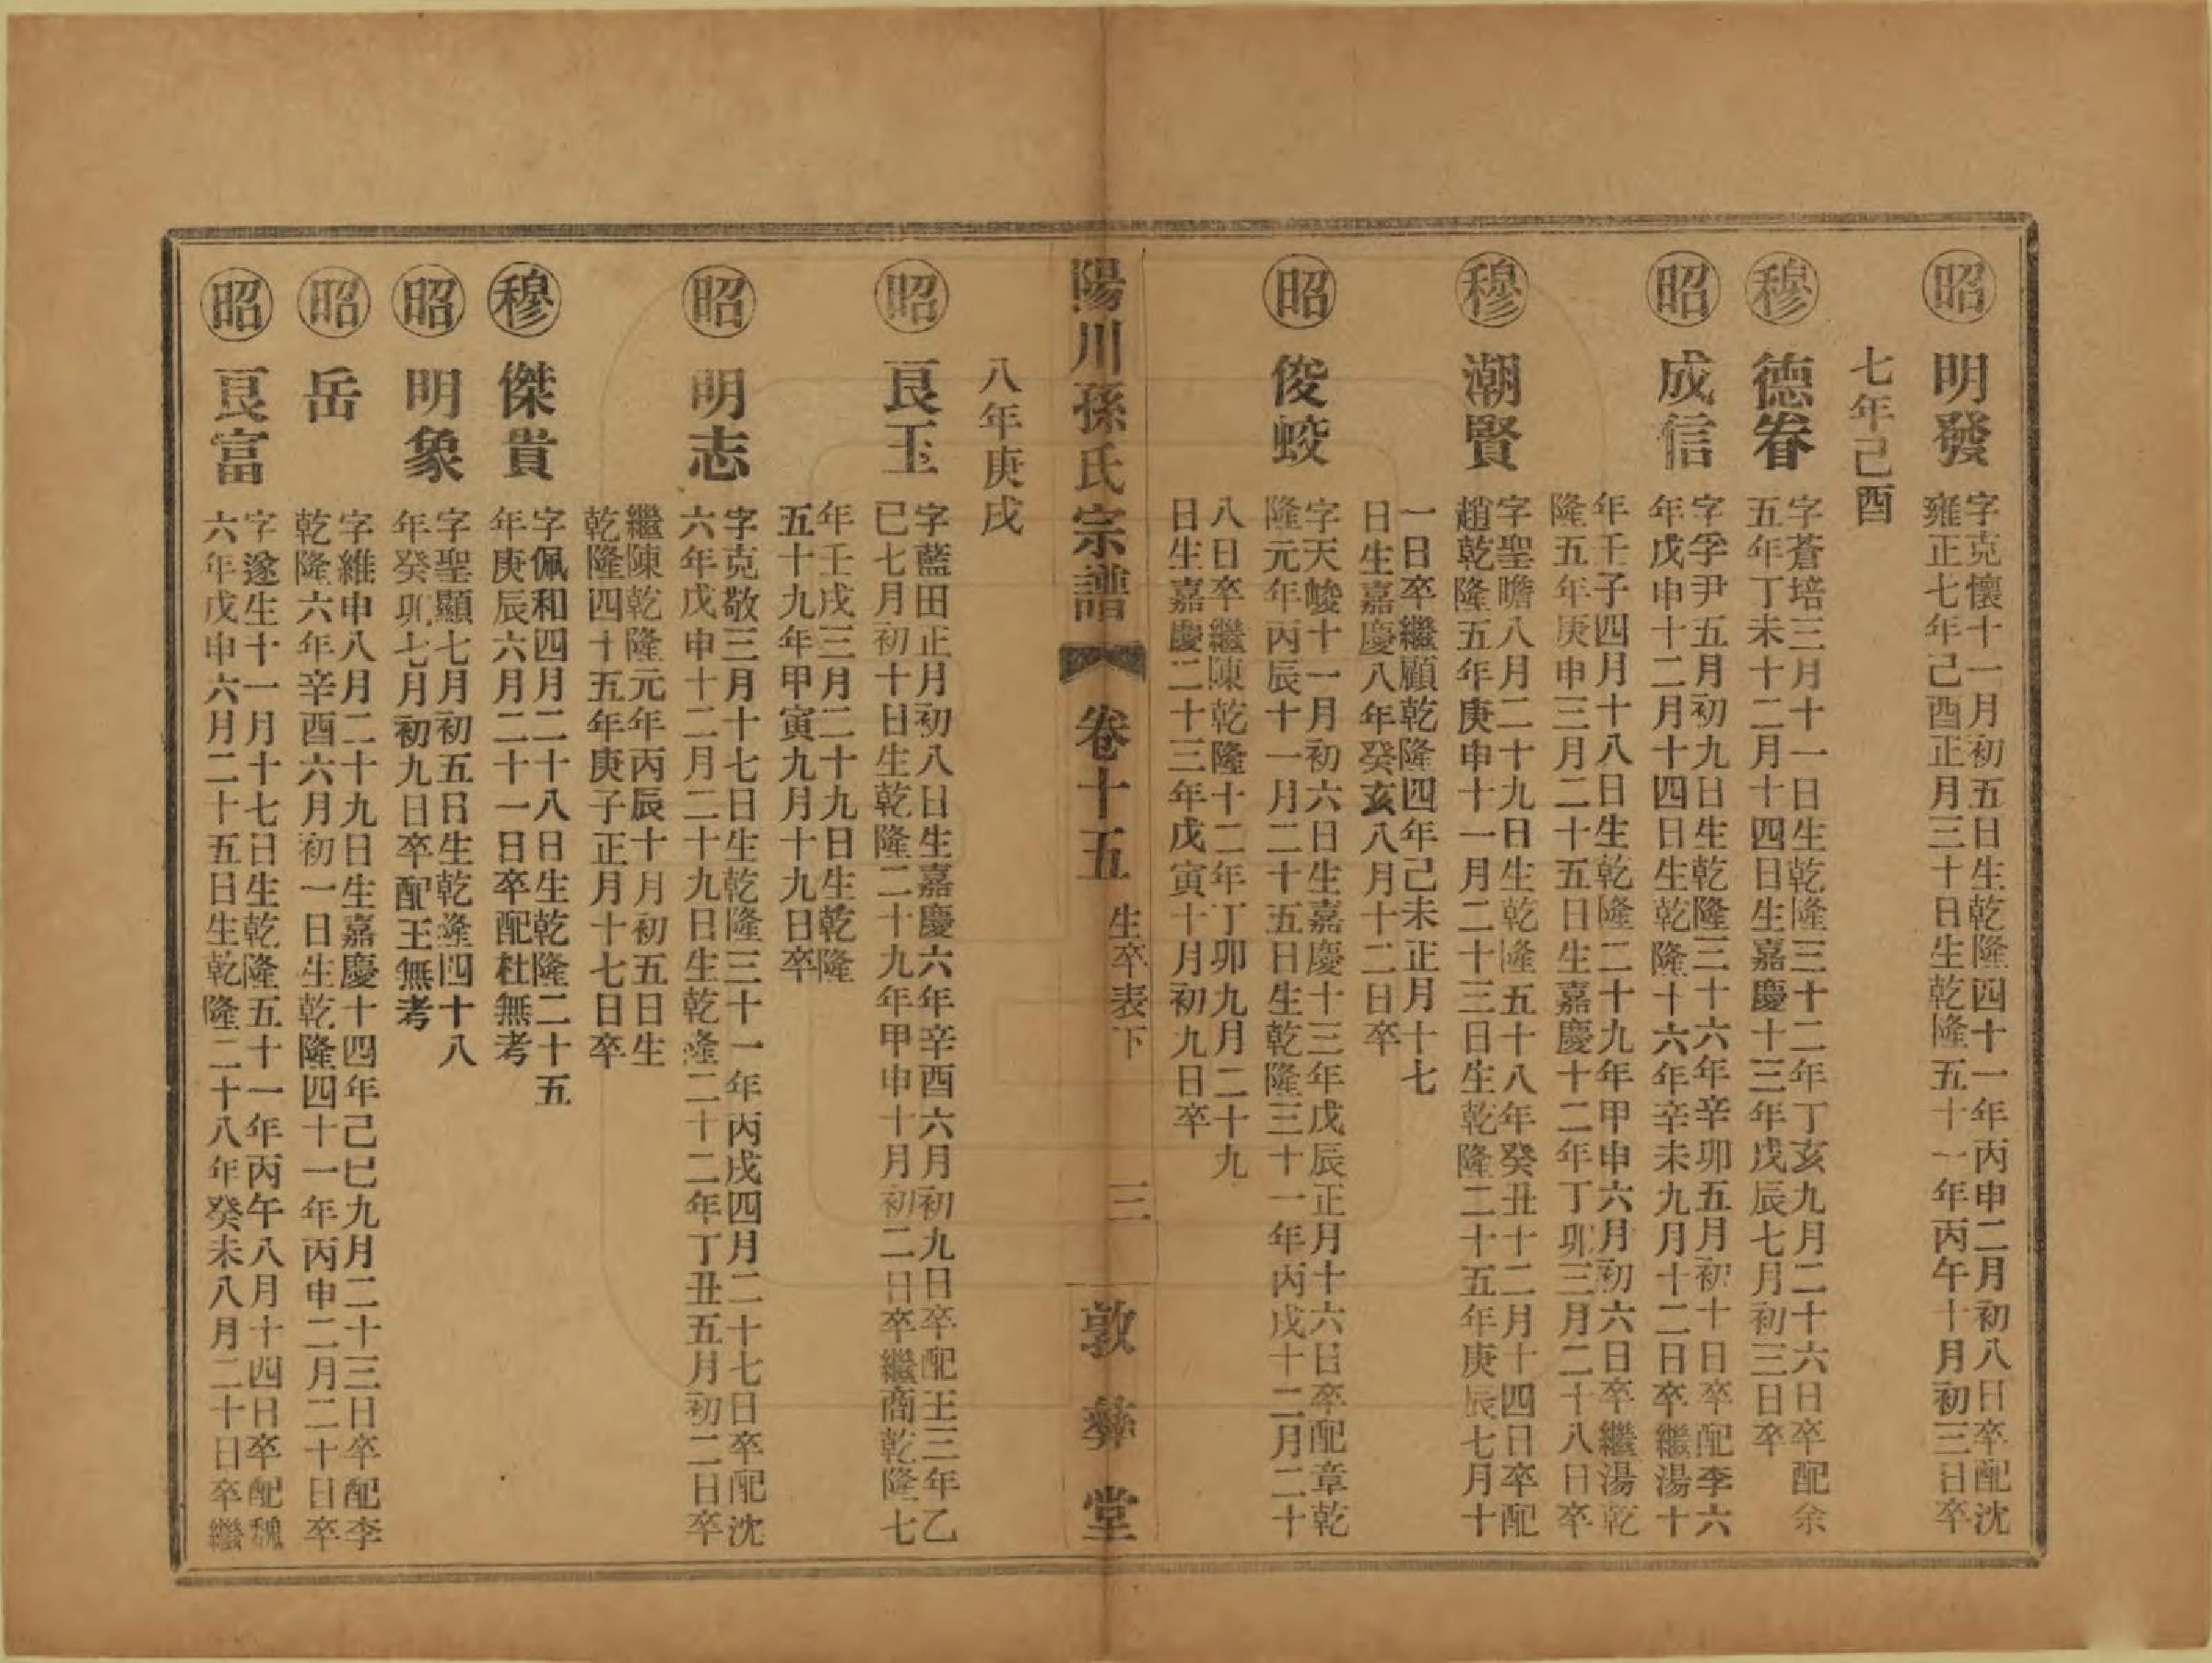 ㊐昭 明發
字克懷十一月初五日生乾隆四十一年丙申二月初八日卒配沈
雍正七年己酉正月三十日生乾隆五十一年丙午十月初三日卒
七年己酉
穆 德眷
字蒼培三月十一日生乾隆三十二年丁亥九月二十六日卒配余
五年丁未十二月十四日生嘉慶十三年戊辰七月初三日卒
昭 成信
字孚尹五月初九日生乾隆三十六年辛卯五月初十日卒配李六
年戊申十二月十四日生乾隆十六年辛未九月十二日卒繼湯十
年壬子四月十八日生乾隆二十九年甲申六月初六日卒繼湯乾
隆五年庚申三月二十五日生嘉慶十二年丁卯三月二十八日卒
穆 潮賢
字聖瞻八月二十九日生乾隆五十八年癸丑十二月十四日卒配
趙乾隆五年庚申十一月二十三日生乾隆二十五年庚辰七月十
一日卒繼顧乾隆四年己未正月十七
日生嘉慶八年癸亥八月十二日卒
昭 俊蛟
字天峻十一月初六日生嘉慶十三年戊辰正月十六日卒配章乾
隆元年丙辰十一月二十五日生乾隆三十一年丙戌十二月二十
八日卒繼陳乾隆十二年丁卯九月二十九
日生嘉慶二十三年戊寅十月初九日卒
陽川孫氏宗譜 卷十五 生卒表下 三 敦彝堂
八年庚戌
昭 艮玉
字藍田正月初八日生嘉慶六年辛酉六月初九日卒配王三年乙
巳七月初十日生乾隆二十九年甲申十月初二日卒繼商乾隆七
年壬戌三月二十九日生乾隆
五十九年甲寅九月十九日卒
昭 明志
字克敬三月十七日生乾隆三十一年丙戌四月二十七日卒配沈
六年戊申十二月二十九日生乾隆二十二年丁丑五月初二日卒
繼陳乾隆元年丙辰十月初五日生
乾隆四十五年庚子正月十七日卒
穆 傑貴
字佩和四月二十八日生乾隆二十五
年庚辰六月二十一日卒配杜無考
昭 明象
字聖顯七月初五日生乾隆四十八
年癸卯七月初九日卒配王無考
昭 岳
字維申八月二十九日生嘉慶十四年己巳九月二十三日卒配李
乾隆六年辛酉六月初一日生乾隆四十一年丙申二月二十日卒
昭 艮富
字邃生十一月十七日生乾隆五十一年丙午八月十四日卒配魏
六年戊申六月二十五日生乾隆二十八年癸未八月二十日卒繼